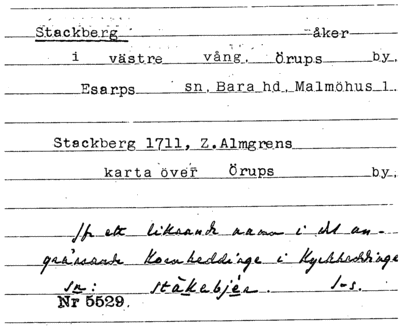 Stackberg åker
i västre vång. Örups by.
Esarps sn. Bara hd. Malmöhus l.
Stackberg 1711, Z.Almgrens
karta över Örups by.
Jfr ett liknande namn i det an-
gränsande Kornheddinge i Kyrkheddinge
sn: ståkabjär. S-s.
Nr 5529.